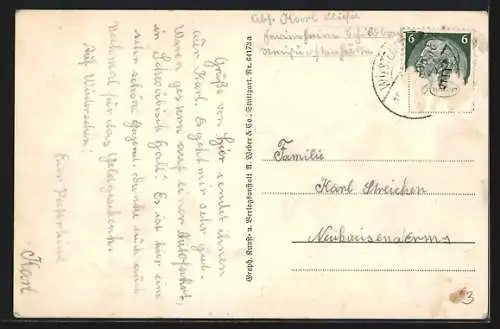 Abs. Karl
6 6
Grüße von hier sendet ihnen
euer Karl. Es geht mir sehr gut.
Waren gestern auf einer Autofahrt,
in Schwäbisch Hall. Es ist hier eine
sehr schöne Gegend. Danke euch auch
nochmal für das Geldgeschenk.
Auf Wiedersehen!
Euer Patenkind
Karl
Graph. Kunst- u. Verlagsanstalt A. Weber & Co., Stuttgart. Nr. 64173a
Familie
Karl Streicher
Neuhausen a/Erms
3